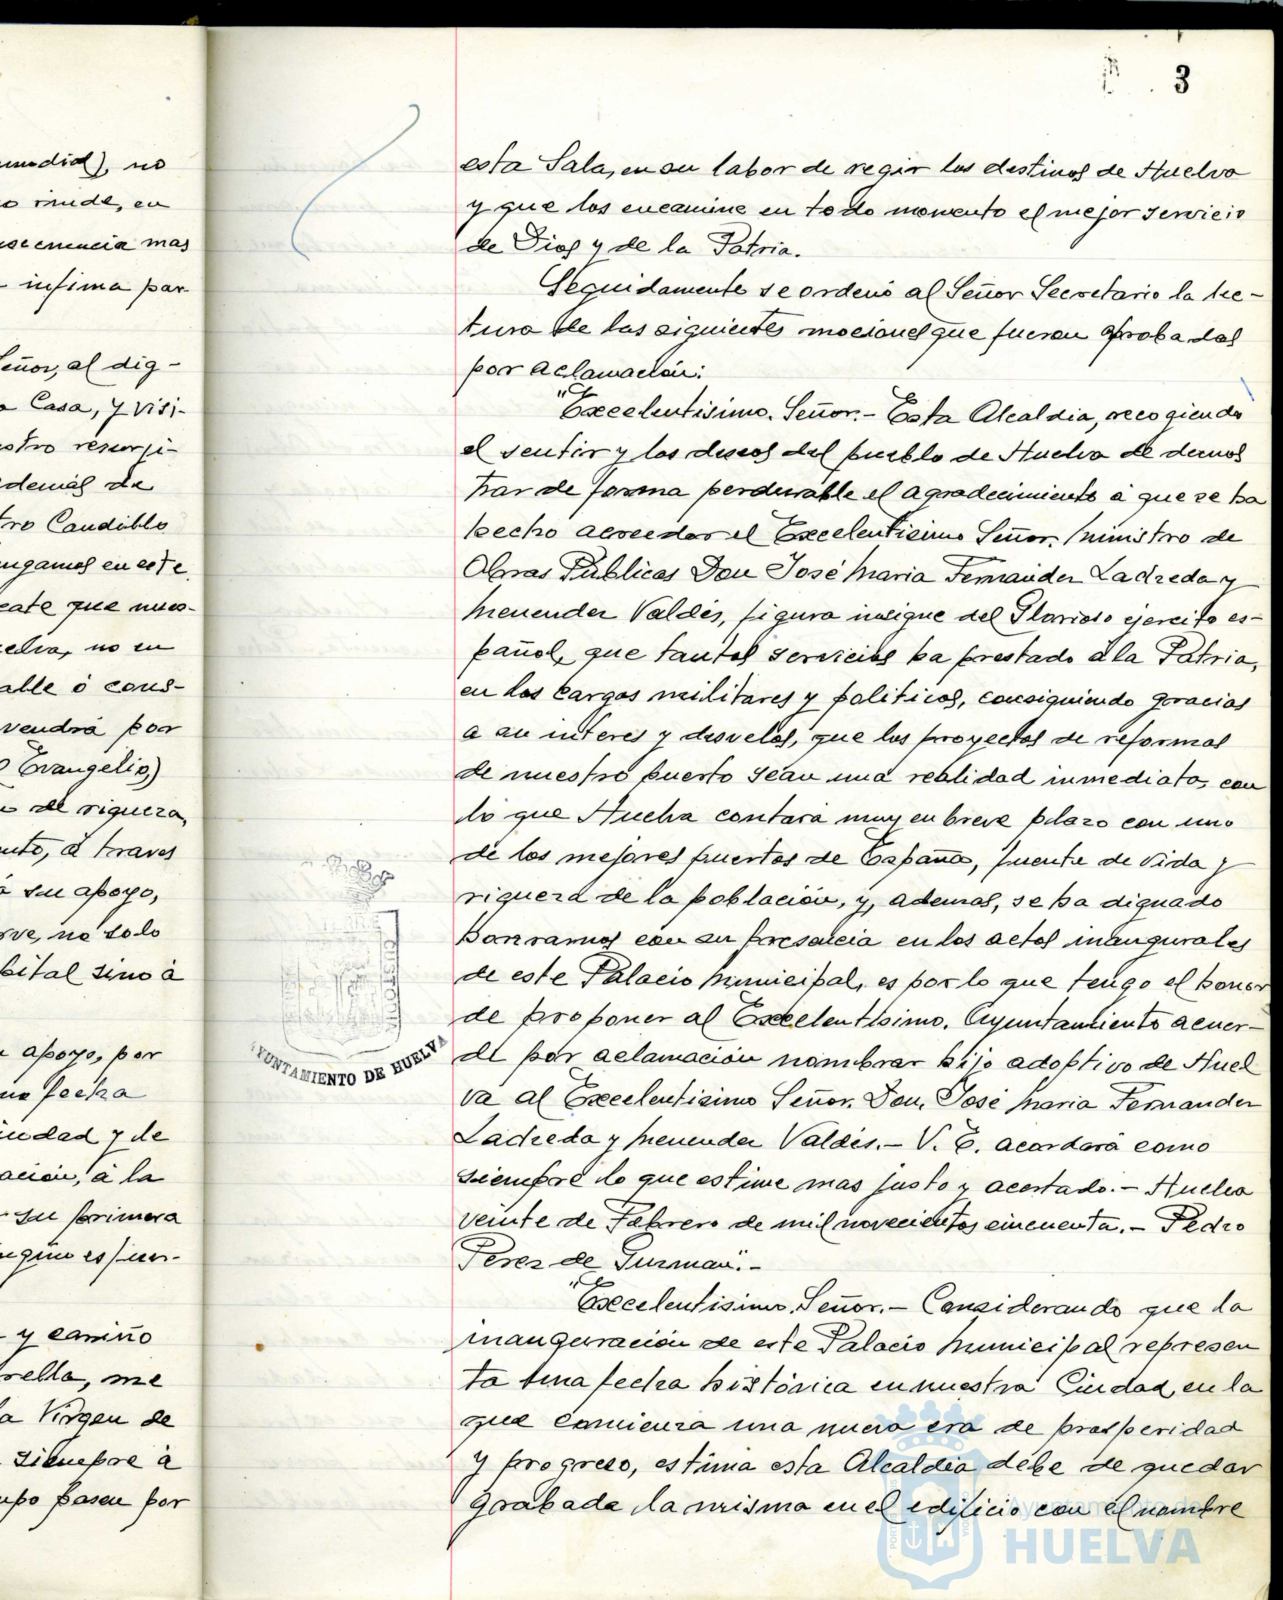 mudial), no
o rinde, en
mas
infima par-
eñor, al dig-
a Casa, y visi-
stro resurji-
demás de
tro Caudillo
ngamos en este
eate que nues-
elva, no en
able ó cons-
vendrá por
Evangelio)
de riqueza,
nto, á traves
á su apoyo,
rve, no solo
pital sino á
apoyo, por
na fecha
iudad y de
ación, á la
su primera
y cariño
rella, me
la Virgen de
siempre á
mpo pasen por
3
esta Sala, en su labor de regir los destinos de Huelva
y que los encamine en todo momento el mejor servicio
de Dios y de la Patria.
Seguidamente se ordenó al Señor Secretario la lec-
tura de las siguientes mociones que fueron aprobadas
por aclamación:
"Excelentisimo. Señor.- Esta Alcaldia, recogiendo
el sentir y los deseos del pueblo de Huelva de demos
trar de forma perdurable el agradecimiento á que se ha
hecho acreedor el Excelentisimo Señor. Ministro de
Obras Públicas Don José Maria Fernández Ladreda y
Menendez Valdés, figura insigne del Glorioso ejercito es-
pañol, que tantos servicios ha prestado á la Patria,
en los cargos militares y politicos, consiguiendo gracias
a su interes y desvelos, que los proyectos de reformas
de nuestro puerto sean una realidad inmediata, con
lo que Huelva contará muy en breve plazo con uno
de los mejores puertos de España, fuente de vida y
riqueza de la población, y, ademas, se ha dignado
honrarnos con su presencia en los actos inaugurales
de este Palacio Municipal, es por lo que tengo el honor
de proponer al Excelentisimo. Ayuntamiento acuer-
de por aclamación nombrar hijo adoptivo de Huel
va al Excelentisimo Señor. Don, José Maria Fernandez
Ladreda y Menendez Valdés.- V. E. acordará como
siempre lo que estime mas justo y acertado.- Huelva
veinte de Febrero de mil novecientos cincuenta.- Pedro
Perez de Guzman".-
"Excelentisimo. Señor.- Considerando que la
inauguración de este Palacio Municipal represen
ta una fecha histórica en nuestra Ciudad, en la
que comienza una nueva era de prosperidad
y progreso, estima esta Alcaldia debe de quedar
grabada la misma en el edificio con el nombre
AYUNTAMIENTO DE HUELVA
Ayuntamiento de
HUELVA